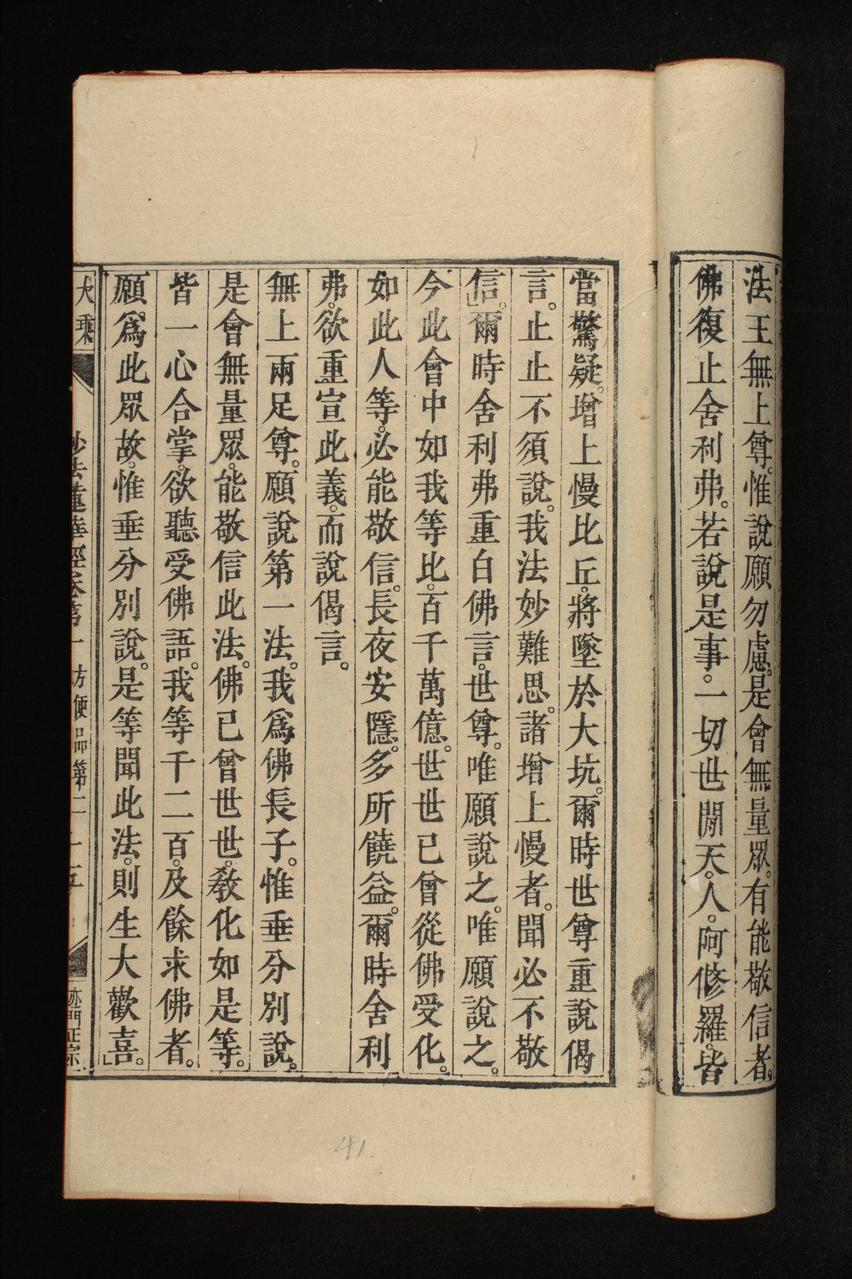 法王無上尊。惟說願勿慮。是會無量眾。有能敬信者。
佛復止舍利弗。若說是事。一切世間天。人。阿修羅。皆
當驚疑。增上慢比丘。將墜於大坑。爾時世尊重說偈
言。止止不須說。我法妙難思。諸增上慢者。聞必不敬
信。爾時舍利弗重白佛言。世尊。唯願說之。唯願說之。
今此會中如我等比。百千萬億。世世已曾從佛受化。
如此人等。必能敬信。長夜安隱。多所饒益。爾時舍利
弗。欲重宣此義。而說偈言。
無上兩足尊。願說第一法。我爲佛長子。惟垂分別說。
是會無量眾。能敬信此法。佛已曾世世。敎化如是等。
皆一心合掌。欲聽受佛語。我等千二百。及餘求佛者。
願爲此眾故。惟垂分別說。是等聞此法。則生大歡喜。
大乘
妙法蓮華經卷第一 方便品第二
迹門正宗
41